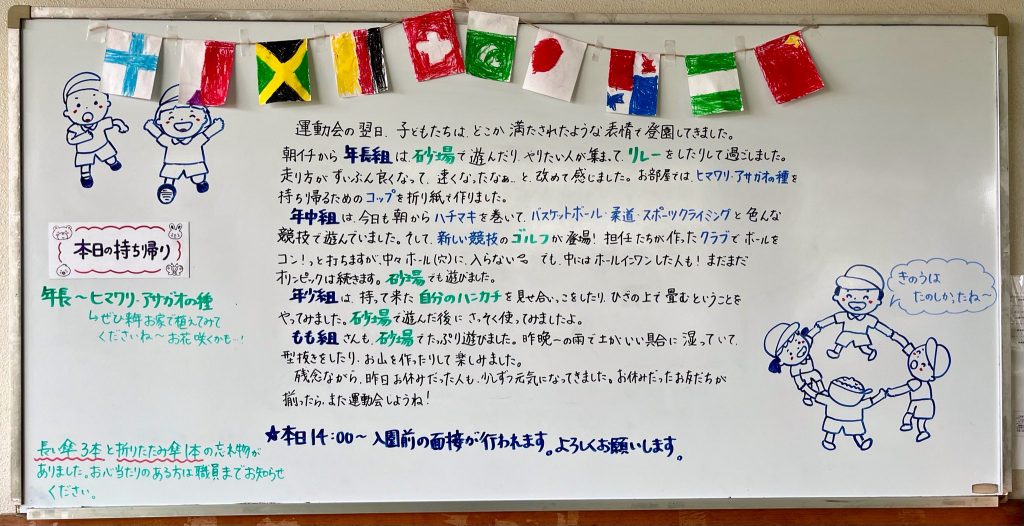 運動会の翌日、子どもたちは、どこか満たされたような表情で登園してきました。
朝イチから年長組は、砂場で遊んだり、やりたい人が集まって、リレーをしたりして過ごしました。
走り方がずいぶん良くなって、速くなったなぁ…と、改めて感じました。お部屋では、ヒマワリ・アサガオの種を
持ち帰るためのコップを折り紙で作りました。
年中組は、今日も朝からハチマキを巻いて、バスケットボール・柔道・スポーツクライミングと色んな
競技で遊んでいました。そして、新しい競技のゴルフが登場！担任たちが作ったクラブでボールを
コン！っと打ちますが、中々ホール(穴)に、入らない でも、中にはホールインワンした人も！まだまだ
オリンピックは続きます。砂場でも遊びました。
年少組は、持って来た自分のハンカチを見せ合いっこをしたり、ひざの上で畳むということを
やってみました。砂場で遊んだ後に、さっそく使ってみましたよ。
もも組さんも、砂場でたっぷり遊びました。昨晩の雨で土がいい具合に湿っていて、
型抜きをしたり、お山を作ったりして楽しみました。
残念ながら、昨日お休みだった人も、少しずつ元気になってきました。お休みだったお友だちが
揃ったら、また運動会しようね！
☆本日14:00～入園前の面接が行われます。よろしくお願いします。
本日の持ち帰り
年長～ヒマワリ・アサガオの種
↳ぜひ来年お家で植えてみて
くださいね～お花咲くかも…！
長い傘3本と折りたたみ傘1本の忘れ物が
ありました。お心当たりのある方は職員までお知らせ
ください。
きのうは
たのしかったね～